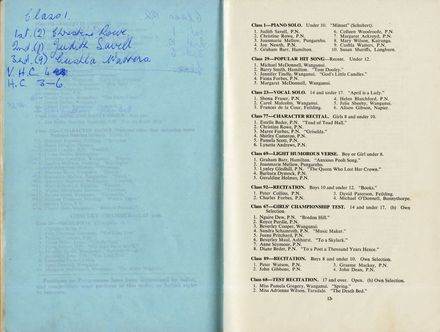 Class 1.
1st. (2) Christine Rowe
2nd (1) Judith Savell
3rd. (9) Cushla Watters
V. H. C.
H. C. 3-6
Class 1—PIANO SOLO. Under 10. "Minuet" (Schubert).
1. Judith Savell, P.N.
2. Christine Rowe, P.N.
3. Joanmarie Mellow, Pungarehu.
4. Joy Newth, P.N.
5. Graham Barr, Hamilton.
6. Colleen Woodroofe, P.N.
7. Margaret Ackroyd, P.N.
8. Mary Wilson, Kairanga.
9. Cushla Watters, P.N.
10. Susan Shurville, Longburn.
Class 29—POPULAR HIT SONG. Recent. Under 12.
1. Michael McDonnell, Wanganui.
2. Barry Smith, Hamilton. "Tom Dooley."
3. Jennifer Tindle, Wanganui. "God's Little Candles."
4. Fiona Forbes, P.N.
5. Margaret McDonnell, Wanganui.
Class 23—VOCAL SOLO. 14 and under 17. "April is a Lady."
1. Shona Fraser, P.N.
2. Carol Malcolm, Wanganui.
3. Frances de la Cour, Feilding.
4. Helen Blanchford, P.N.
5. Julie Sheehy, Wanganui.
6. Alison Gibson, Napier.
Class 77—CHARACTER RECITAL. Girls 8 and under 10.
1. Estelle Beder, P.N. "Toad of Toad Hall."
2. Christine Rowe, P.N.
3. Maree Forbes, P.N. "Griselda."
4. Shirley Cameron, P.N.
5. Pamela Scott, P.N.
6. Lynette Andrews, P.N.
Class 69—LIGHT HUMOROUS VERSE. Boy or Girl under 8.
1. Graham Barr, Hamilton. "Anxious Pooh Song."
2. Joanmarie Mellow, Pungarehu.
3. Lynley Gledhill, P.N. "The Queen Who Lost Her Crown."
4. Barbara Dymock, P.N.
5. Geraldine Holmes, P.N.
Class 92—RECITATION. Boys 10 and under 12. "Books."
1. Peter Collins, P.N.
2. Charles Forbes, P.N.
3. David Paterson, Feilding.
4. Michael O'Donnell, Bunnythorpe.
Class 67—GIRLS' CHAMPIONSHIP TEST. 14 and under 17. (b) Own
Selection.
1. Ngaire Dew, P.N. "Bredon Hill"
2. Keyce Perdie, P.N.
3. Beverley Cooper, Wanganui.
4. Sandra Schaumroth, P.N. "Music Maker."
5. Joene Pritchard, P.N.
6. Beverley Maul, Ashhurst. "To a Skylark."
7. Anne Seymour, P.N.
8. Diane Beder, P.N. "To a Poet a Thousand Years Hence."
Class 89—RECITATION. Boys 8 and under 10. Own Selection.
1. Peter Watson, P.N.
2. John Gibbons, P.N.
3. Graeme Mackay, P.N.
4. John Dean, P.N.
Class 68—TEST RECITATION. 17 and over. Open. (b) Own Selection.
1. Miss Pamela Gregory, Wanganui. "Spring."
2. Miss Adrienne Wilson, Taradale. "The Death Bed."